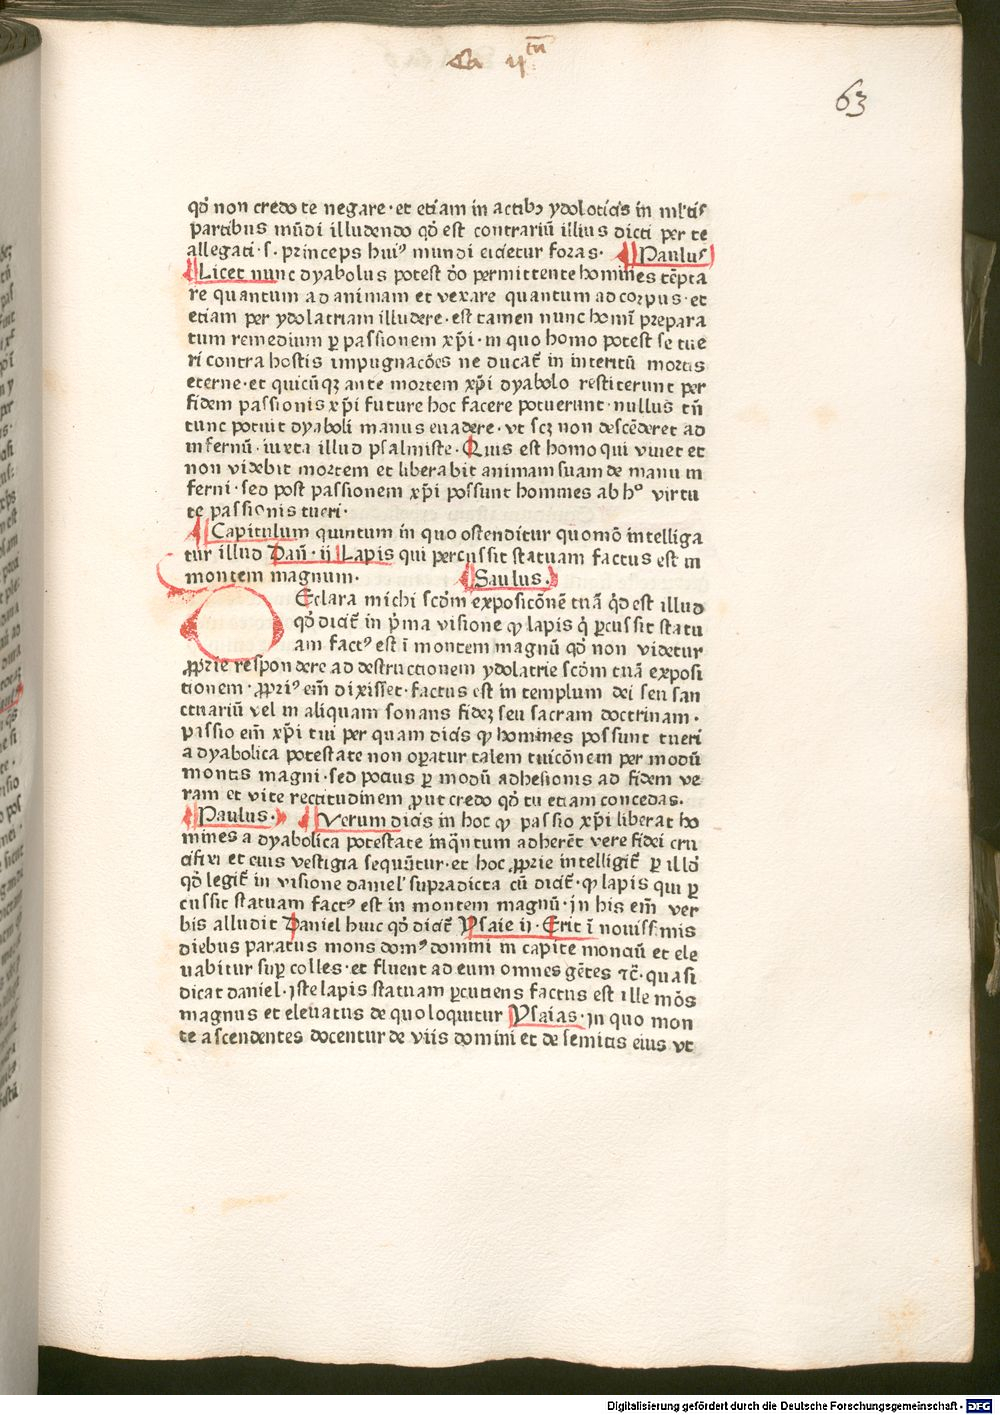 Ca ii tū
63
qđ non credo te negare·et etiam in actibꝫ ydoloticis in ml'tis
partibus mūdi illudendo qđ est contrariū illius dicti per te
allegati·s·princeps hui⁹ mundi eicietur foras· Paulus
Licet nunc dyabolus potest đo permittente homines tēpta
re quantum ad animam et vexare quantum ad corpus·et
etiam per ydolatriam illudere·est tamen nunc homī prepara
tum remedium ꝑ passionem xp̄i·in quo homo potest se tue
ri contra hostis impugnacōes ne ducat̄ in interitū mortis
eterne·et quicūqꝫ ante mortem xp̄i dyabolo restiterunt per
fidem passionis xp̄i future hoc facere potuerunt·nullus tn̄
tunc potuit dyaboli manus euadere·vt scꝫ non descēderet ad
infernū·iuxta illud psalmiste·Quis est homo qui viuet et
non videbit mortem et liberabit animam suam de manu in
ferni·sed post passionem xp̄i possunt homines ab h° virtu
te passionis tueri·
Capitulum quintum in quo ostenditur quomō intelliga
tur illud Dan̄·ii Lapis qui percussit statuam factus est in
montem magnum· Saulus·
Eclara michi scđm exposicōnē tuā qđ est illud
qđ dicit̄ in p̄ma visione ꝙ lapis q̇ ꝑcussit statu
am fact⁹ est ī montem magnū qđ non videtur
ꝓprie respondere ad destructionem ydolatrie scđm tuā exposi
tionem·ꝓpri⁹ em̄ dixisset·factus est in templum dei seu san
ctuariū vel in aliquam sonans fideꝫ seu sacram doctrinam·
passio em̄ xp̄i tui per quam dicis ꝙ homines possunt tueri
a dyabolica potestate non oꝑatur talem tuicōnem per modū
montis magni·sed pocius ꝑ modū adhesionis ad fidem ve
ram et vite rectitudinem ꝓut credo qđ tu etiam concedas·
Paulus· Verum dicis in hoc ꝙ passio xp̄i liberat ho
mines a dyabolica potestate inq̄ntum adherēt vere fidei cru
cifixi et eius vestigia sequūtur·et hoc ꝓprie intelligit̄ ꝑ illđ
qđ legit̄ in visione daniel' supradicta cū dicit̄·ꝙ lapis qui ꝑ
cussit statuam fact⁹ est in montem magnū·in his em̄ ver
bis alludit Daniel huic qđ dicit̄ Ysaie ii·Erit ī nouissimis
diebus paratus mons dom⁹ domini in capite monciū et ele
uabitur suꝑ colles·et fluent ad eum omnes gētes ⁊c̄·quasi
dicat daniel·iste lapis statuam ꝑcutiens factus est ille mōs
magnus et eleuatus de quo loquitur Ysaias·in quo mon
te ascendentes docentur de viis domini et de semitis eius vt
Digitalisierung gefördert durch die Deutsche Forschungsgemeinschaft - DFG